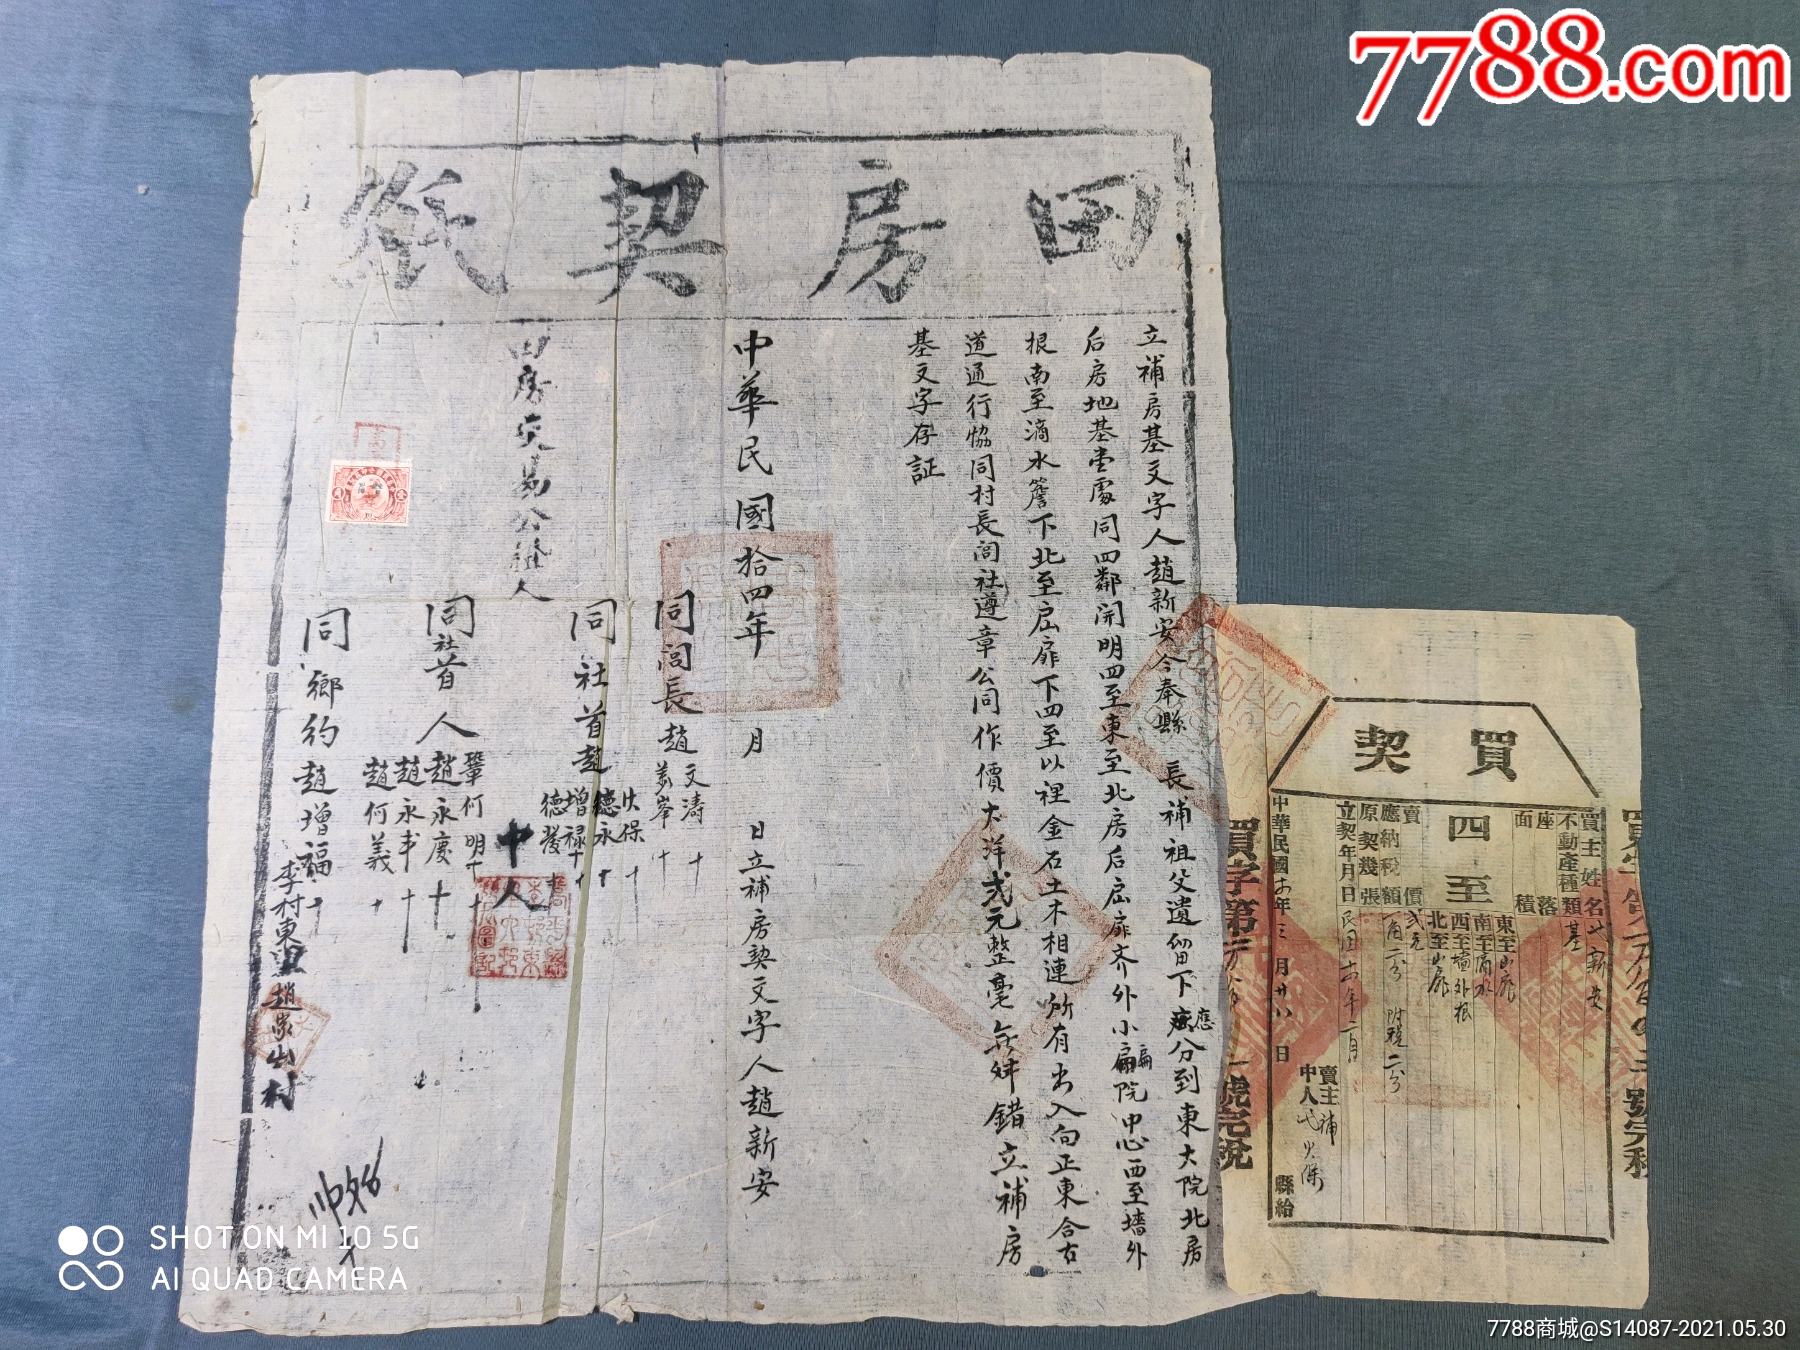 7788.com
田房契紙
立補房基文字人趙新安今奉縣長補祖父遺留下應分到東大院北房
后房地基壹處同四鄰開明四至東至北房后屈扉齐外小扁院中心西至墻外
根南至滴水簷下北至屈扉下四至以裡金石土木相連所有出入向正東合古
道通行協同村長閭社遵章公同作價大洋弍元整毫無舛錯立補房
基文字存証
中華民國拾四年 月 日立補房契文字人趙新安
同閭長趙文濤十
萬峯十
同社首趙
保十
德永十
增禄十
德發十
中人
田房交易公證人
同社首人鞏何明十
趙永慶十
趙永年十
趙何義十
同鄉約趙增福十
李村東溝趙家山村
買契
買主姓名 新安
不動產種類 基
座落
面積
四至
東至山扉
南至滴水
西至墻外根
北至山扉
賣價 弍元
應納稅額 一角二分 附稅二分
原契幾張
立契年月日 民国十六年二月
賣主 補
中人
中華民國十六年三月廿八日
縣給
買字第
號完稅
SHOT ON MI 10 5G
AI QUAD CAMERA
7788商城@S14087-2021.05.30